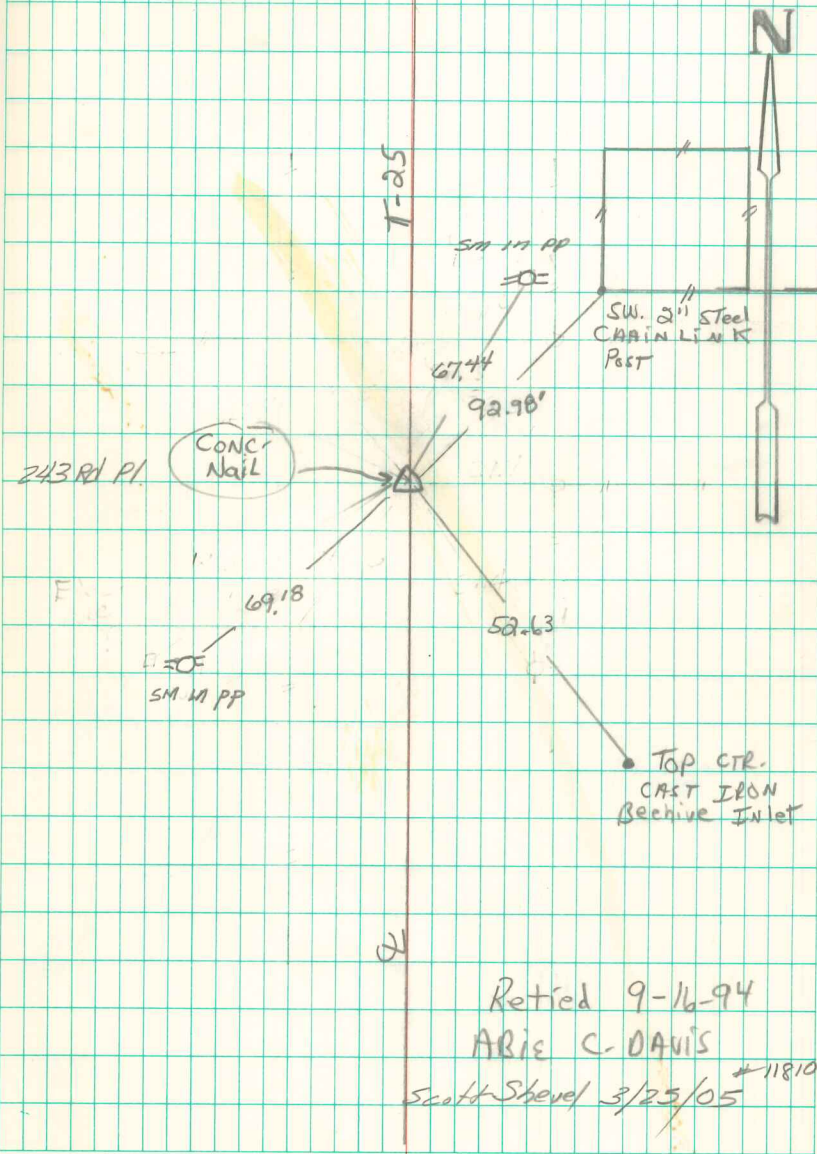 N
T-25
SM IN PP
SW. 2" STeel
CHAIN LINK
POST
67.44
92.98'
CONC.
NaiL
243 Rd Pl.
69.18
52.63
SM IN PP
TOP CTR.
CAST IRON
Beehive INlet
Retied 9-16-94
ABIE C. DAVIS
#11810
Scott Shevel 3/25/05